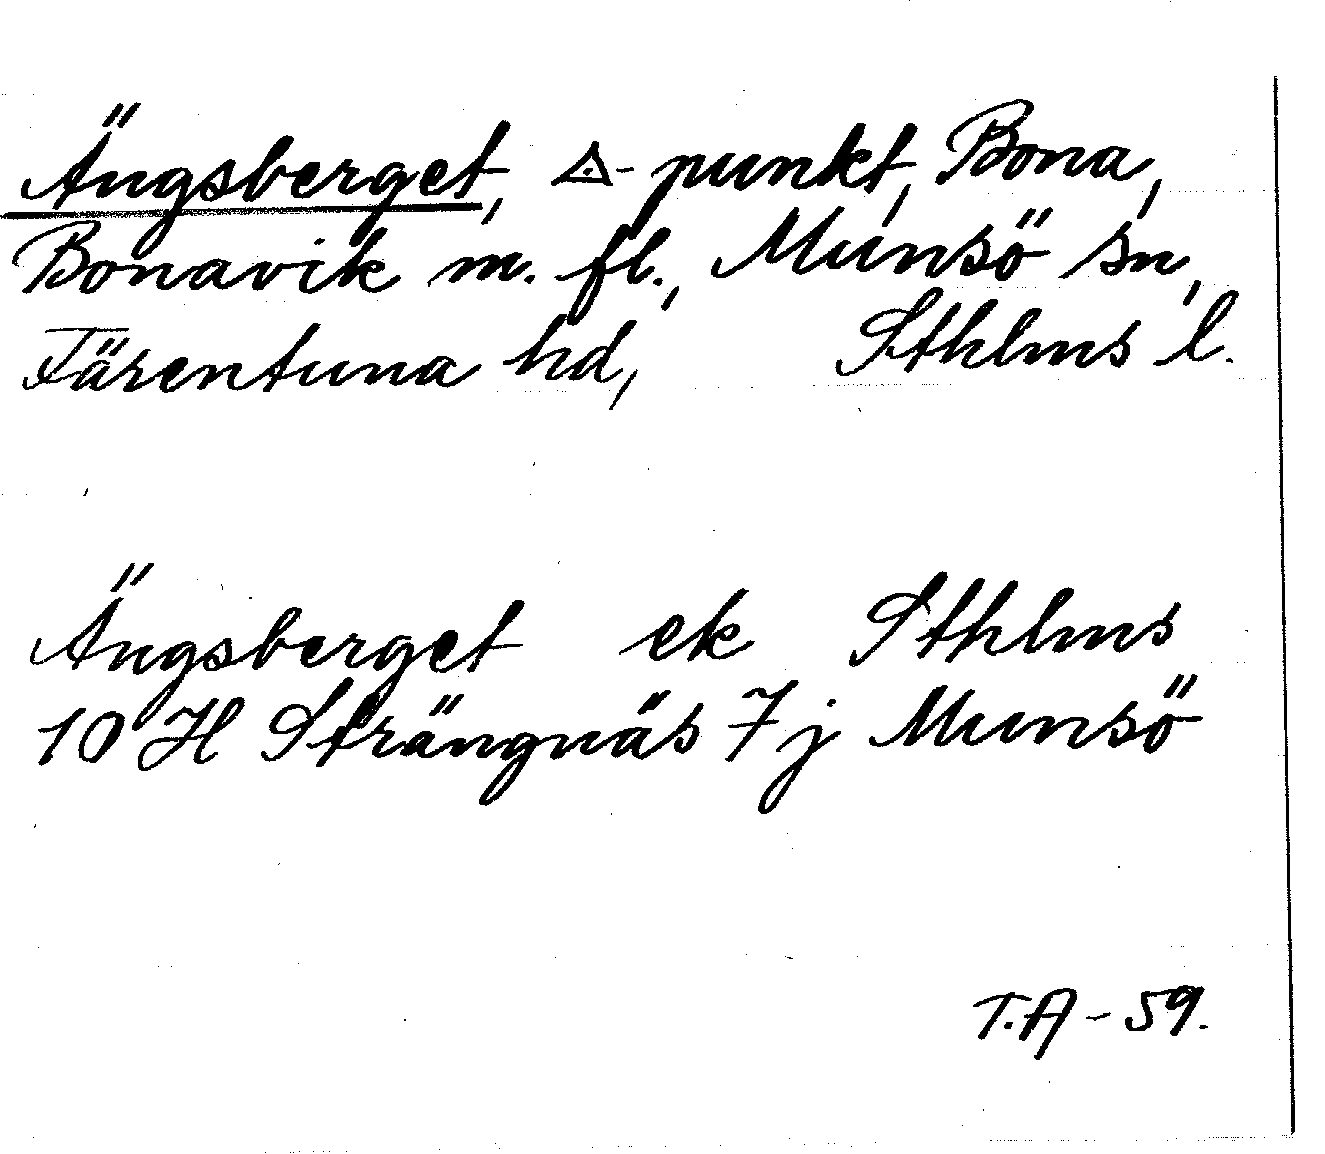 Ängsberget, ◬-punkt, Bona,
Bonavik m. fl., Munsö sn,
Färentuna hd, Sthlms l.
Ängsberget ek Sthlms
10 H Strängnäs 7j Munsö
T.A - 59.